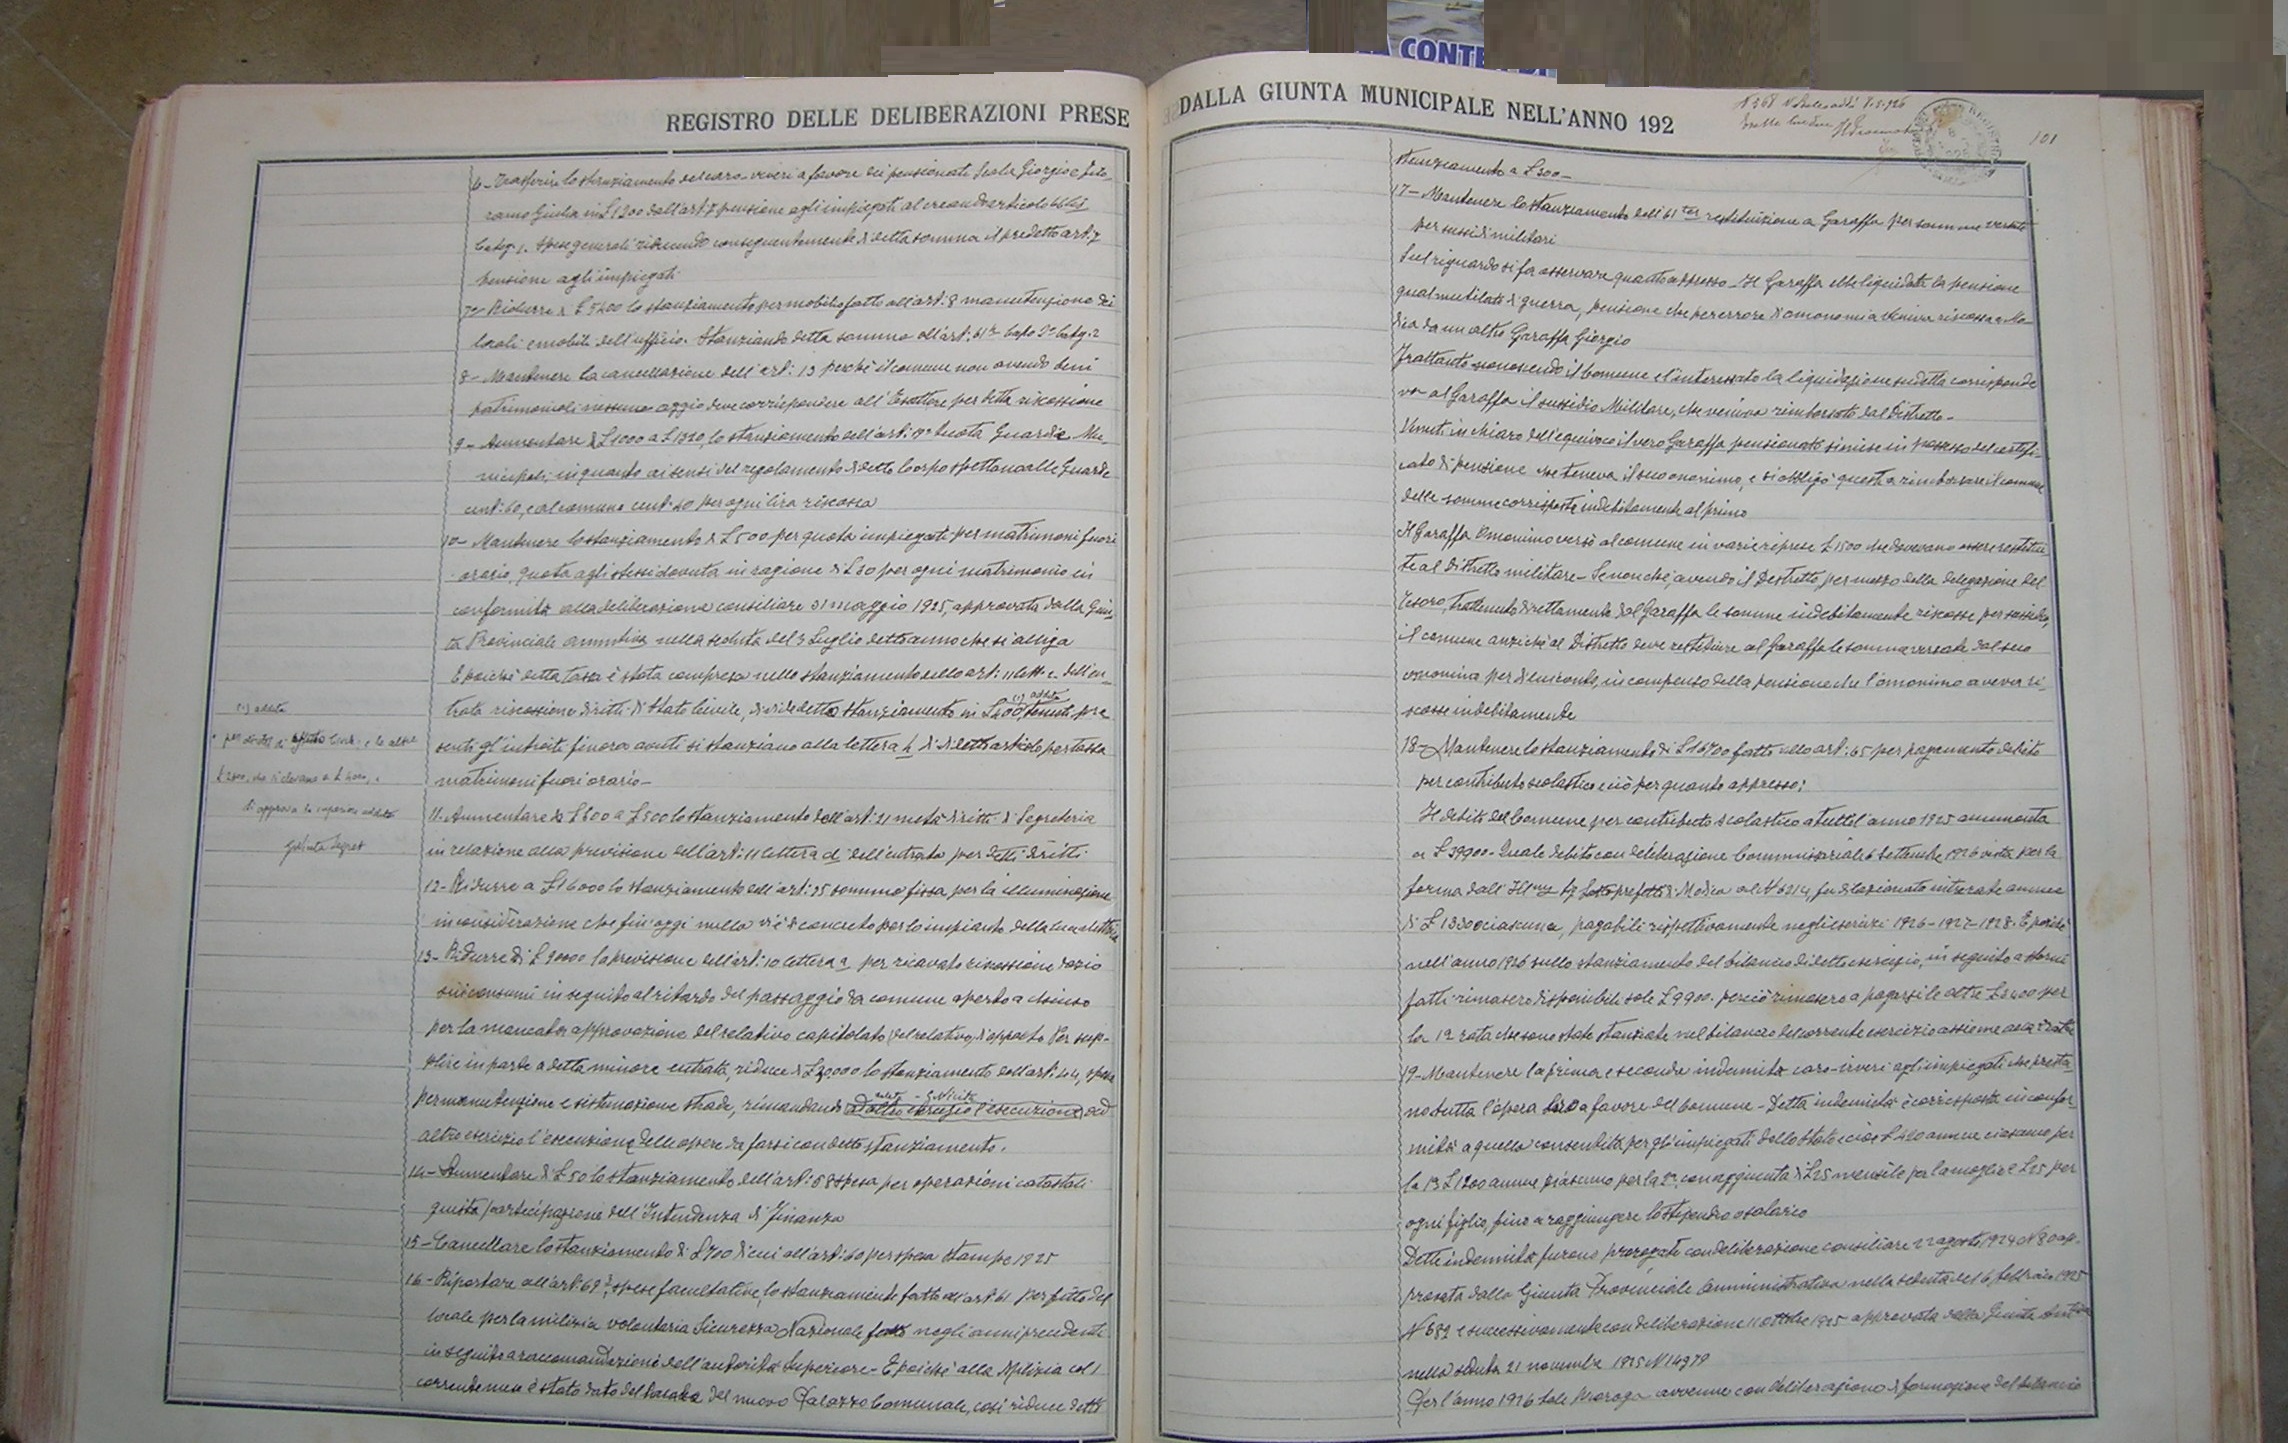 CONTE DI
REGISTRO DELLE DELIBERAZIONI PRESE
6 - Trasferire lo stanziamento del caro-viveri a favore dei pensionati Giorgio e
Giulia in £ 1200 dall'art. 7 pensione agli impiegati al creando articolo 66 bis
Categ. 1. Spese generali riducendo conseguentemente di detta somma il predetto art. 7
pensione agli impiegati
7 - Ridurre di £ 5200 lo stanziamento per mobilio fatto all'art. 8 manutenzione dei
locali e mobili dell'ufficio. Stanziando detta somma all'art. 61 Capo 2° Catg. 2
8 - Mantenere la cancellazione dell'art: 13 perchè il comune non avendo beni
patrimoniali nessuno aggio deve corrispondere all'Esattore per detta riscossione
9 - Aumentare di £ 1000 a £ 1320, lo stanziamento dell'art: 17 quota Guardie Mu-
nicipali, in quanto ai sensi del regolamento di detto Corpo spettano alle Guardie
cent: 60, e al comune cent: 40 per ogni lira riscossa
10 - Mantenere lo stanziamento di £ 500 per quota impiegati per matrimoni fuori
orario, quota agli stessi dovuta in ragione di £ 30 per ogni matrimonio in
conformità alla deliberazione consiliare 31 maggio 1925, approvata dalla Giun-
ta Provinciale amm/tiva nella seduta del 3 Luglio detto anno che si alliga
E poichè detta tassa è stata compresa nello stanziamento dello art: 11 lett. c. dell'en-
(1) addita
trata riscossione diritti di Stato Civile, divide detto stanziamento in £ 400, tenuti pre
senti gl'introiti finora avuti si stanziano alla lettera h di detto articolo per tassa
matrimoni fuori orario -
(1) addita
per diritti di Stato Civile e le altre
si approva la superiore addita
11 - Aumentare di £ 600 a £ 500 lo stanziamento dell'art: 21 metà diritti di Segreteria
in relazione alla previsione dell'art: 11 lettera d dell'entrata per detti diritti
12 - Ridurre a £ 16000 lo stanziamento dell'art: 35 somma fissa per la illuminazione
in considerazione che fin'oggi nulla vi è di concreto per lo impianto della luce elettrica
13 - Ridurre di £ 30000 la previsione dell'art: 10 lettera a per ricavato riscossione dazio
sui consumi in seguito al ritardo del passaggio da comune aperto a chiuso
per la mancata approvazione del relativo capitolato del relativo d'appalto Per sup-
plire in parte a detta minore entrata, riduce di £ 20.000 lo stanziamento dell'art: 44, spese
per manutenzione e sistemazione strade, rimandando ad altro esercizio l'esecuzione ad
altro esercizio l'esecuzione delle opere da farsi con detto stanziamento.
14 - Aumentare di £ 50 lo stanziamento dell'art: 58 spesa per operazioni catastali
giusta partecipazione dell'Intendenza di Finanza
15 - Cancellare lo stanziamento di £ 700 di cui all'art: 60 per spesa stampe 1925
16 - Riportare all'art. 69, spese facoltative, lo stanziamento fatto all'art 61 per fitto del
locale per la milizia volontaria Sicurezza Nazionale fatto negli anni precedenti
in seguito a raccomandazioni dell'autorità Superiore - E poichè alla Milizia col 1
corrente mese è stato dato del del nuovo Palazzo Comunale, così riduce detto
DALLA GIUNTA MUNICIPALE NELL'ANNO 192
101
stanziamento a £ 300 -
17 - Mantenere lo stanziamento dell'61 ter restituzione a Garaffa per somme versate
per sussidi militari
Sul riguardo si fa osservare quanto appresso - Il Garaffa ebbe liquidata la pensione
qual mutilato di guerra, pensione che per errore di omonomia veniva riscossa a Mo-
dica da un altro Garaffa Giorgio
Frattanto non avendo il Comune e l'interessato la liquidazione sudetta corrisponde
va al Garaffa il sussidio Militare, che veniva rimborsato dal Distretto -
Venuti in chiaro dell'equivoco il vero Garaffa pensionato si mise in possesso del certifi-
cato di pensione che teneva il suo omonimo, e si obbligò questi a rimborsare il comune
delle somme corrisposte indebitamente al primo
Il Garaffa Omonimo versò al comune in varie riprese £ 1500 che dovevano essere restitui
te al Distretto militare - Senonchè, avendo il Distretto per mezzo della delegazione del
Tesoro, trattenuto direttamente dal Garaffa le somme indebitamente riscosse per sussidio,
il comune anzichè al Distretto deve restituire al Garaffa le somme versate dal suo
omonimo per d'lui conto, in compenso della pensione che l'omonimo aveva ri-
scosse indebitamente
18 - Mantenere lo stanziamento di £ 16700 fatto nello art: 65 per pagamento debito
per contributo scolastico e ciò per quanto appresso:
Il debito del Comune per contributo scolastico a tutto l'anno 1925 ammonta
a £ 39900 - Quale debito con deliberazione Commissariale 6 Settembre 1926 vista per la
forma dall'Ill/mo Sig. Sottoprefetto di Modica al N° 6214, fu dilazionato in tre rate annue
di £ 13300 ciascuna, pagabili rispettivamente negli esercizi 1926 - 1927 - 1928. E poichè
nell'anno 1926 sullo stanziamento del bilancio di detto esercizio, in seguito a storni
fatti rimasero disponibili sole £ 9900. perciò rimasero a pagarsi le altre £ 3400 per
la 1ª rata che sono state stanziate nel bilancio del corrente esercizio assieme alla 2ª rata
19 - Mantenere la prima e seconda indennità caro-viveri agli impiegati che presta-
no tutta l'opera loro a favore del Comune - Detta indennità è corrisposta in confor-
mità a quella consentita per gl'impiegati dello Stato e cioè £ 420 annue ciascuno per
la 1ª £ 1200 annue ciascuno per la 2ª, con aggiunta di £ 25 mensile per la moglie e £ 25 per
ogni figlio, fino a raggiungere lo stipendio o salario
Dette indennità furono prorogate con deliberazione consiliare 22 agosto 1924 N 80 ap-
provata dalla Giunta Provinciale Amministrativa nella seduta del 6 febbraio 1925
N° 682 e successivamente con deliberazione 11 ottobre 1925 approvata dalla Giunta
nella seduta 21 novembre 1925 N 14379
Per l'anno 1926 tale proroga avvenne con deliberazione di formazione del bilancio